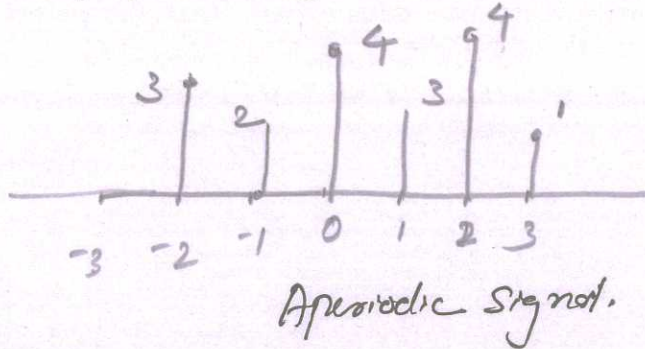 3 2 4 3 4 1
-3 -2 -1 0 1 2 3
Aperiodic Signal.